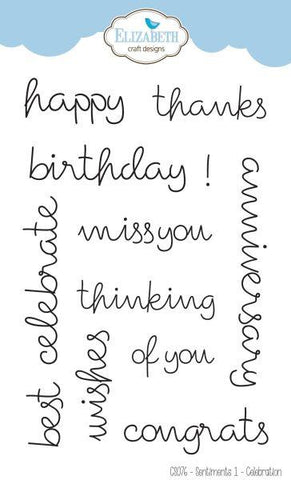 ELIZABETH
craft designs
happy
thanks
birthday !
anniversary
miss you
celebrate
thinking
of you
best
wishes
congrats
CS076 - Sentiments 1 - Celebration